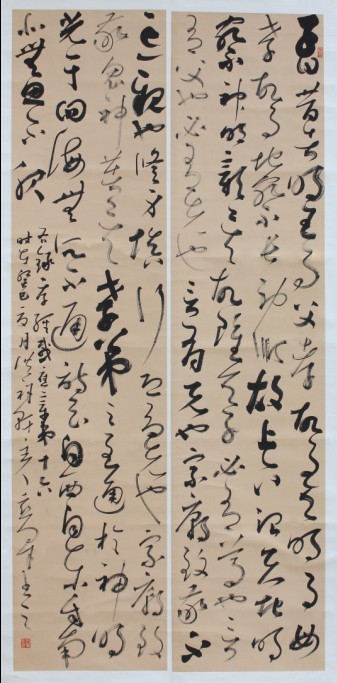 子曰昔者明王事父孝故事天明事母
孝故事地察長幼順故上下治天地明
察神明彰矣故雖天子必有尊也言
有父也必有先也言有兄也宗廟致敬不
忘親也修身慎行恐辱先也宗廟致
敬鬼神著矣孝弟之至通於神明
光于四海無所不通詩云自西自東自南
北無思不服
右録孝經感應章第十六
時在癸巳